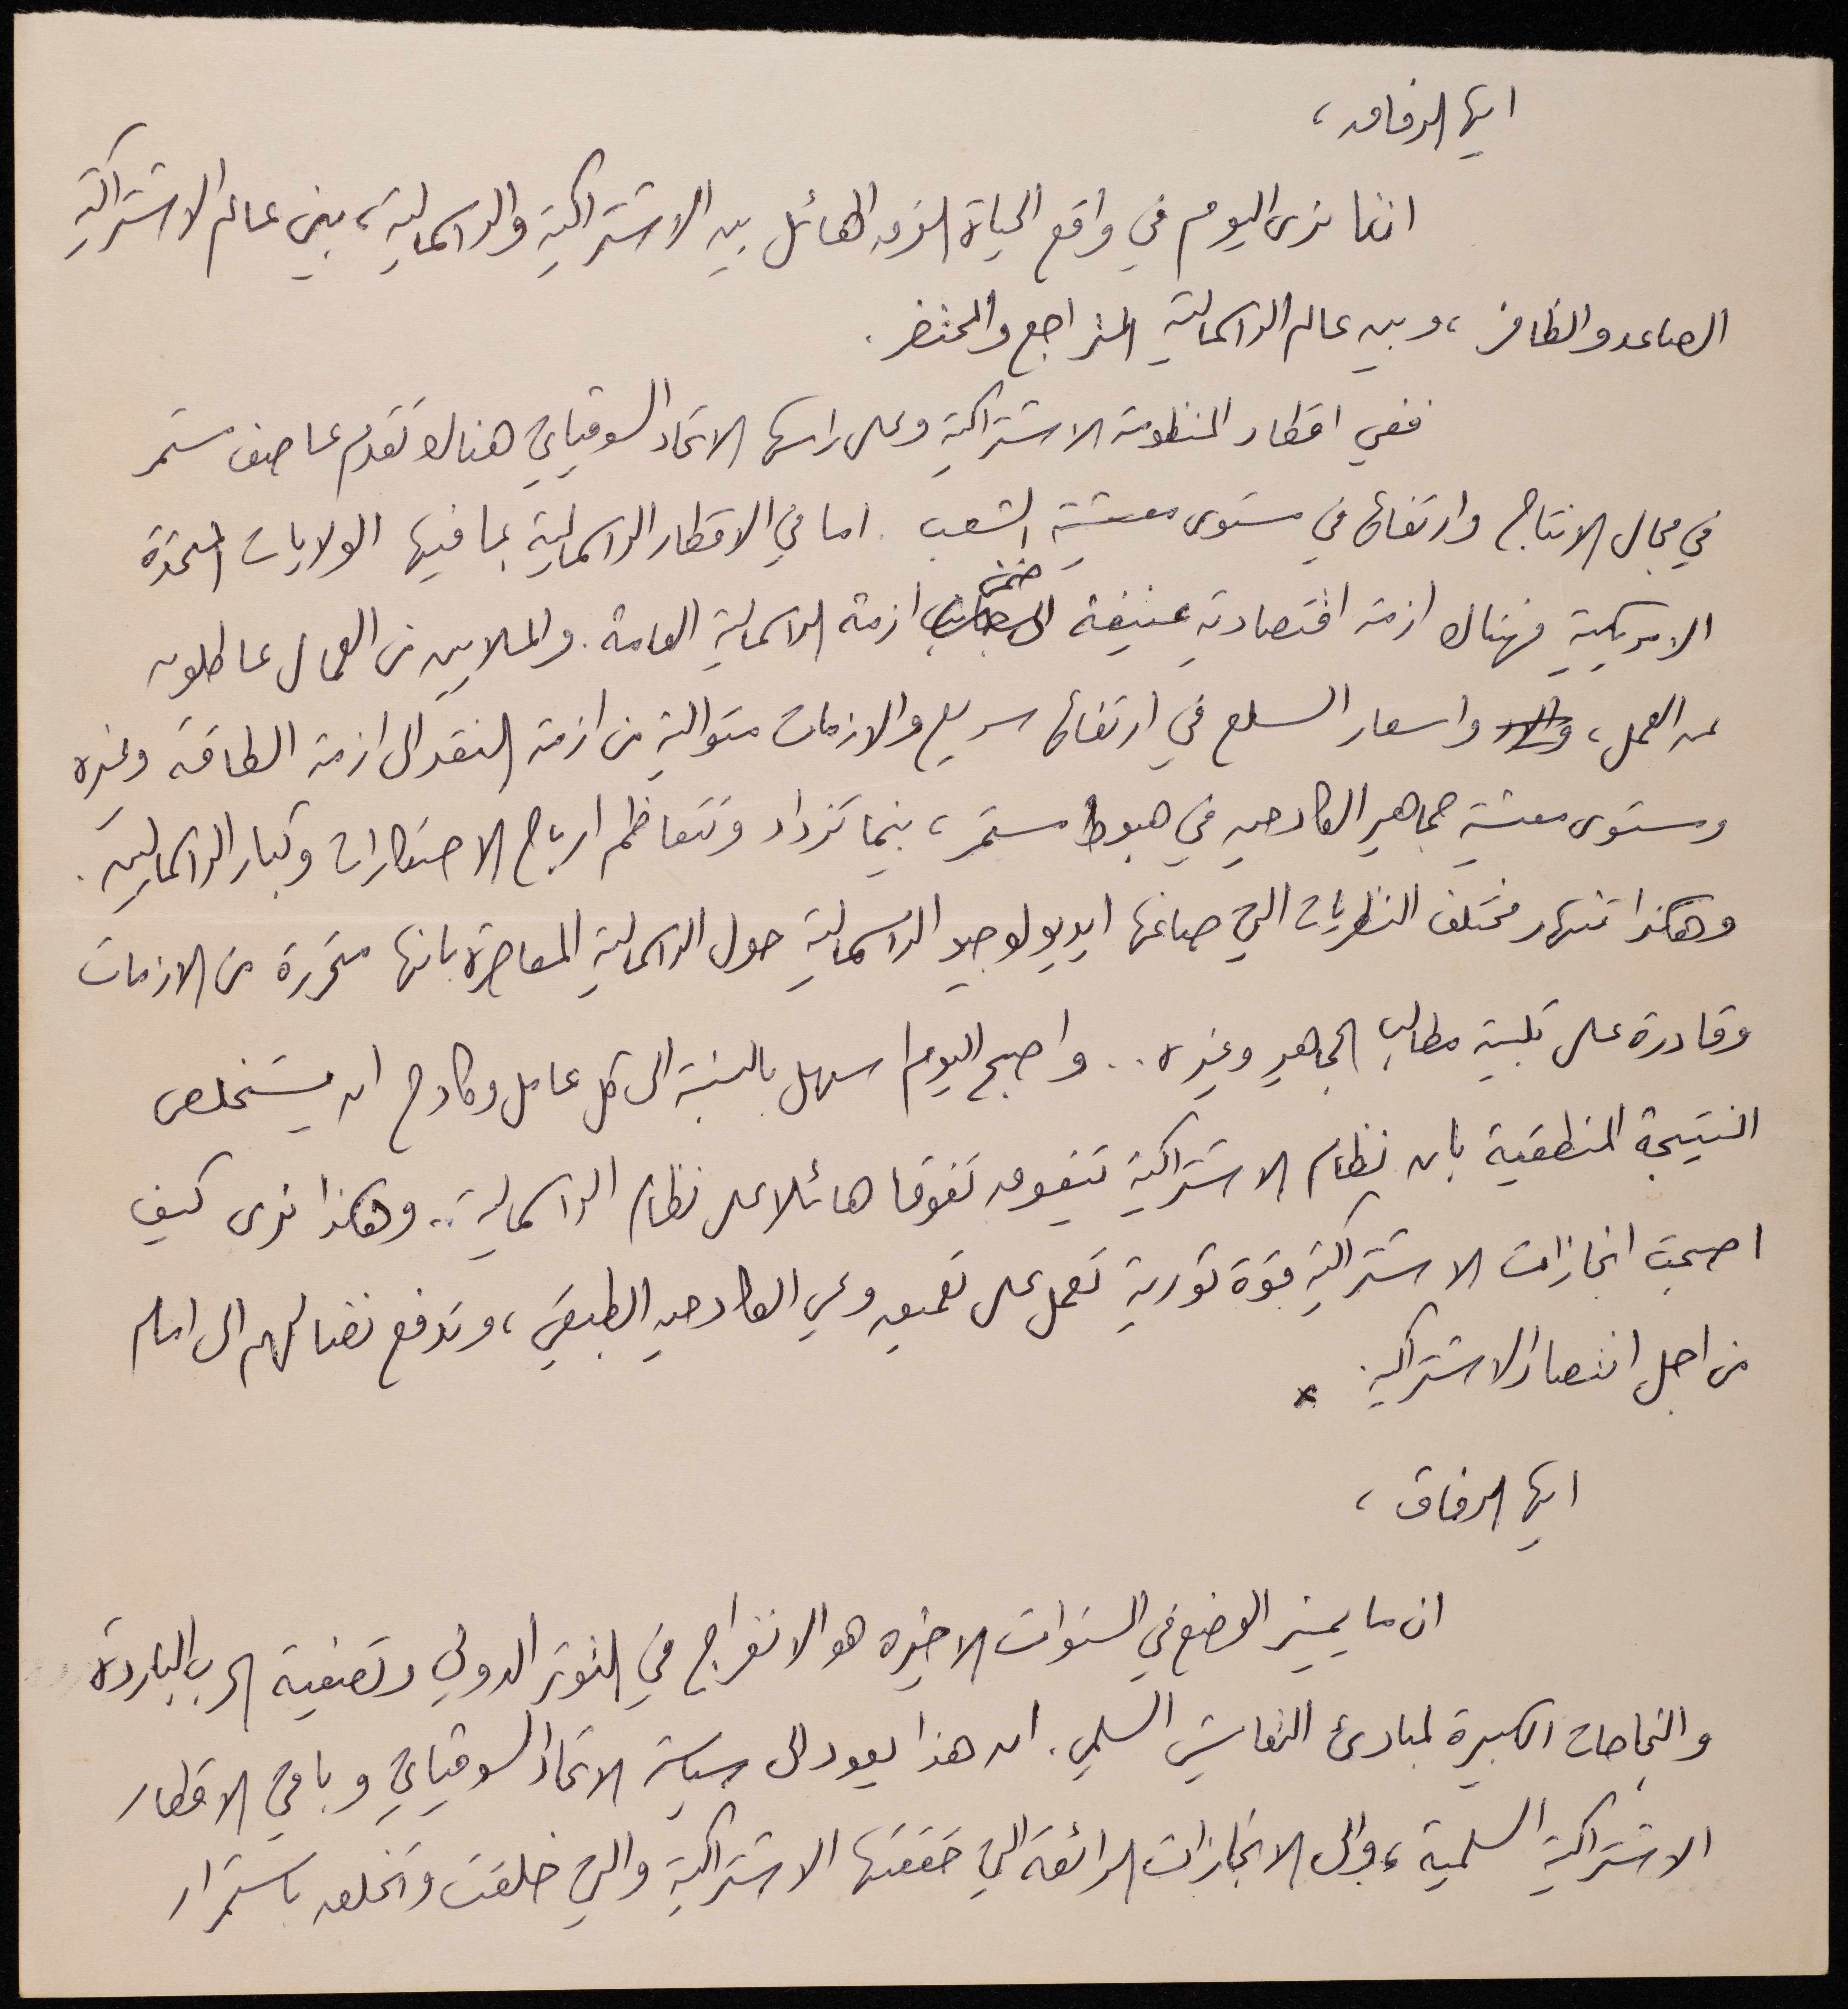 ايها الرفاق،
اننا نرى اليوم في واقع الحياة الفرق الهائل بين الاشتراكية والراسمالية، بين عالم الاشتراكية
الصاعد والظافر، وبين عالم الراسمالية المتراجع والمحتضر.
ففي اقطار المنظومة الاشتراكية وعلى راسها الاتحاد السوفياتي هناك تقدم عاصف مستمر
في مجال الانتاج وارتفاع في مستوى معيشة الشعب. اما في الاقطار الراسمالية بما فيها الولايات المتحدة
الامريكية فهناك ازمة اقتصادية عنيفة ضمن ازمة الراسمالية العامة. والملايين من العمال عاطلون
عن العمل، واسعار السلع في ارتفاع سريع والازمات متوالية من ازمة النقد الى ازمة الطاقة وغيره
ومستوى معيشة جماهير الكادحين في هبوط مستمر، بينما تزداد وتتعاظم ارباح الاحتكارات وكبار الراسماليين.
وهكذا تنهار مختلف النظريات التي صاغها ايديولوجيو الراسمالية حول الراسمالية المعاصرة بانها متحررة من الازمات
وقادرة على تلبية مطالب الجماهير وغيره.. واصبح اليوم اسهل بالنسبة الى كل عامل وكادح ان يستخلص
النتيجة المنطقية بان نظام الاشتراكية تتفوق تفوقا هائلا على نظام الراسمالية.. وهكذا نرى كيف
اصبحت انجازات الاشتراكية قوة ثورية تعمل على تعميق وعي الكادحين الطبقي، وتدفع نضالهم الى امام
من اجل انتصار الاشتراكية. x
ايها الرفاق،
ان ما يميز الوضع في السنوات الاخيره هو الانفراج في التوتر الدولي وتصفية الحرب الباردة
والنجاحات الكبيرة لمبادئ التعايش السلمي. ان هذا يعود الى سياسة الاتحاد السوفياتي وباقي الاقطار
الاشتراكية السلمية، والى الانجازات الرائعة التي حققتها الاشتراكية والتي خلقت وتخلق باستمرار